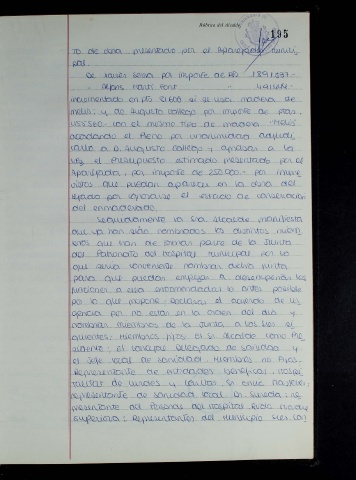 Rúbrica del Alcalde
195
to de obra presentado por el Aparejador Munici-
pal.
De Javier Serra por importe de Pts. 1.891.037.-
" Alfons Martí Font "
incrementado en pts 21.600 si se usa madera de
melis; y de Augusto Gallego por importe de ptas.
455.560 con el mismo tipo de madera "melis"
acordando el Pleno por unanimidad adjudi-
carla a D. Augusto Gallego y aprobar a la
vez el Presupuesto estimado presentado por el
Aparejador, por importe de 250.000.- por impre-
vistos que puedan aparecer en la obra del
tejado por ignorarse el estado de conservación
del enmaderado.
Seguidamente la Sra. Alcalde manifiesta
que ya han sido nombrados los distintos miem-
bros que han de formar parte de la Junta
del Patronato del Hospital Municipal por lo
que sería conveniente nombrar dicha Junta
para que puedan empezar a desempeñar las
funciones a ellos encomendadas lo antes posible
por lo que propone declarar el acuerdo de ur-
gencia por no estar en la orden del día y
nombrar miembros de la Junta a los Sres. si-
guientes: Miembros fijos el Sr. Alcalde como Pre-
sidente; el Concejal Delegado de Sanidad y
el Jefe local de Sanidad. Miembros no fijos:
Representante de entidades benéficas,
representante de Sanidad local Dr. re-
presentante del Personal del Hospital, Madre
Superiora; Representantes del Municipio Sres.